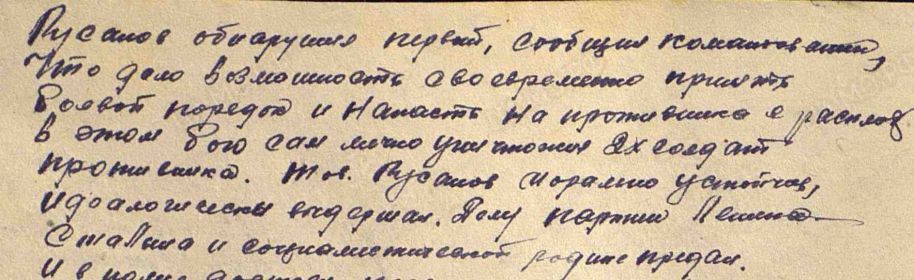 Русанов обнаружил первый, сообщил командованию,
Что дало возможность своевременно принять
боевой порядок и напасть на противника с
в этом бою сам лично уничтожил 2х солдат
противника. Тов. Русанов морально устойчив,
идеалогически выдержан. Делу партии Ленина
Сталина и социалистической родине предан.
И в полне